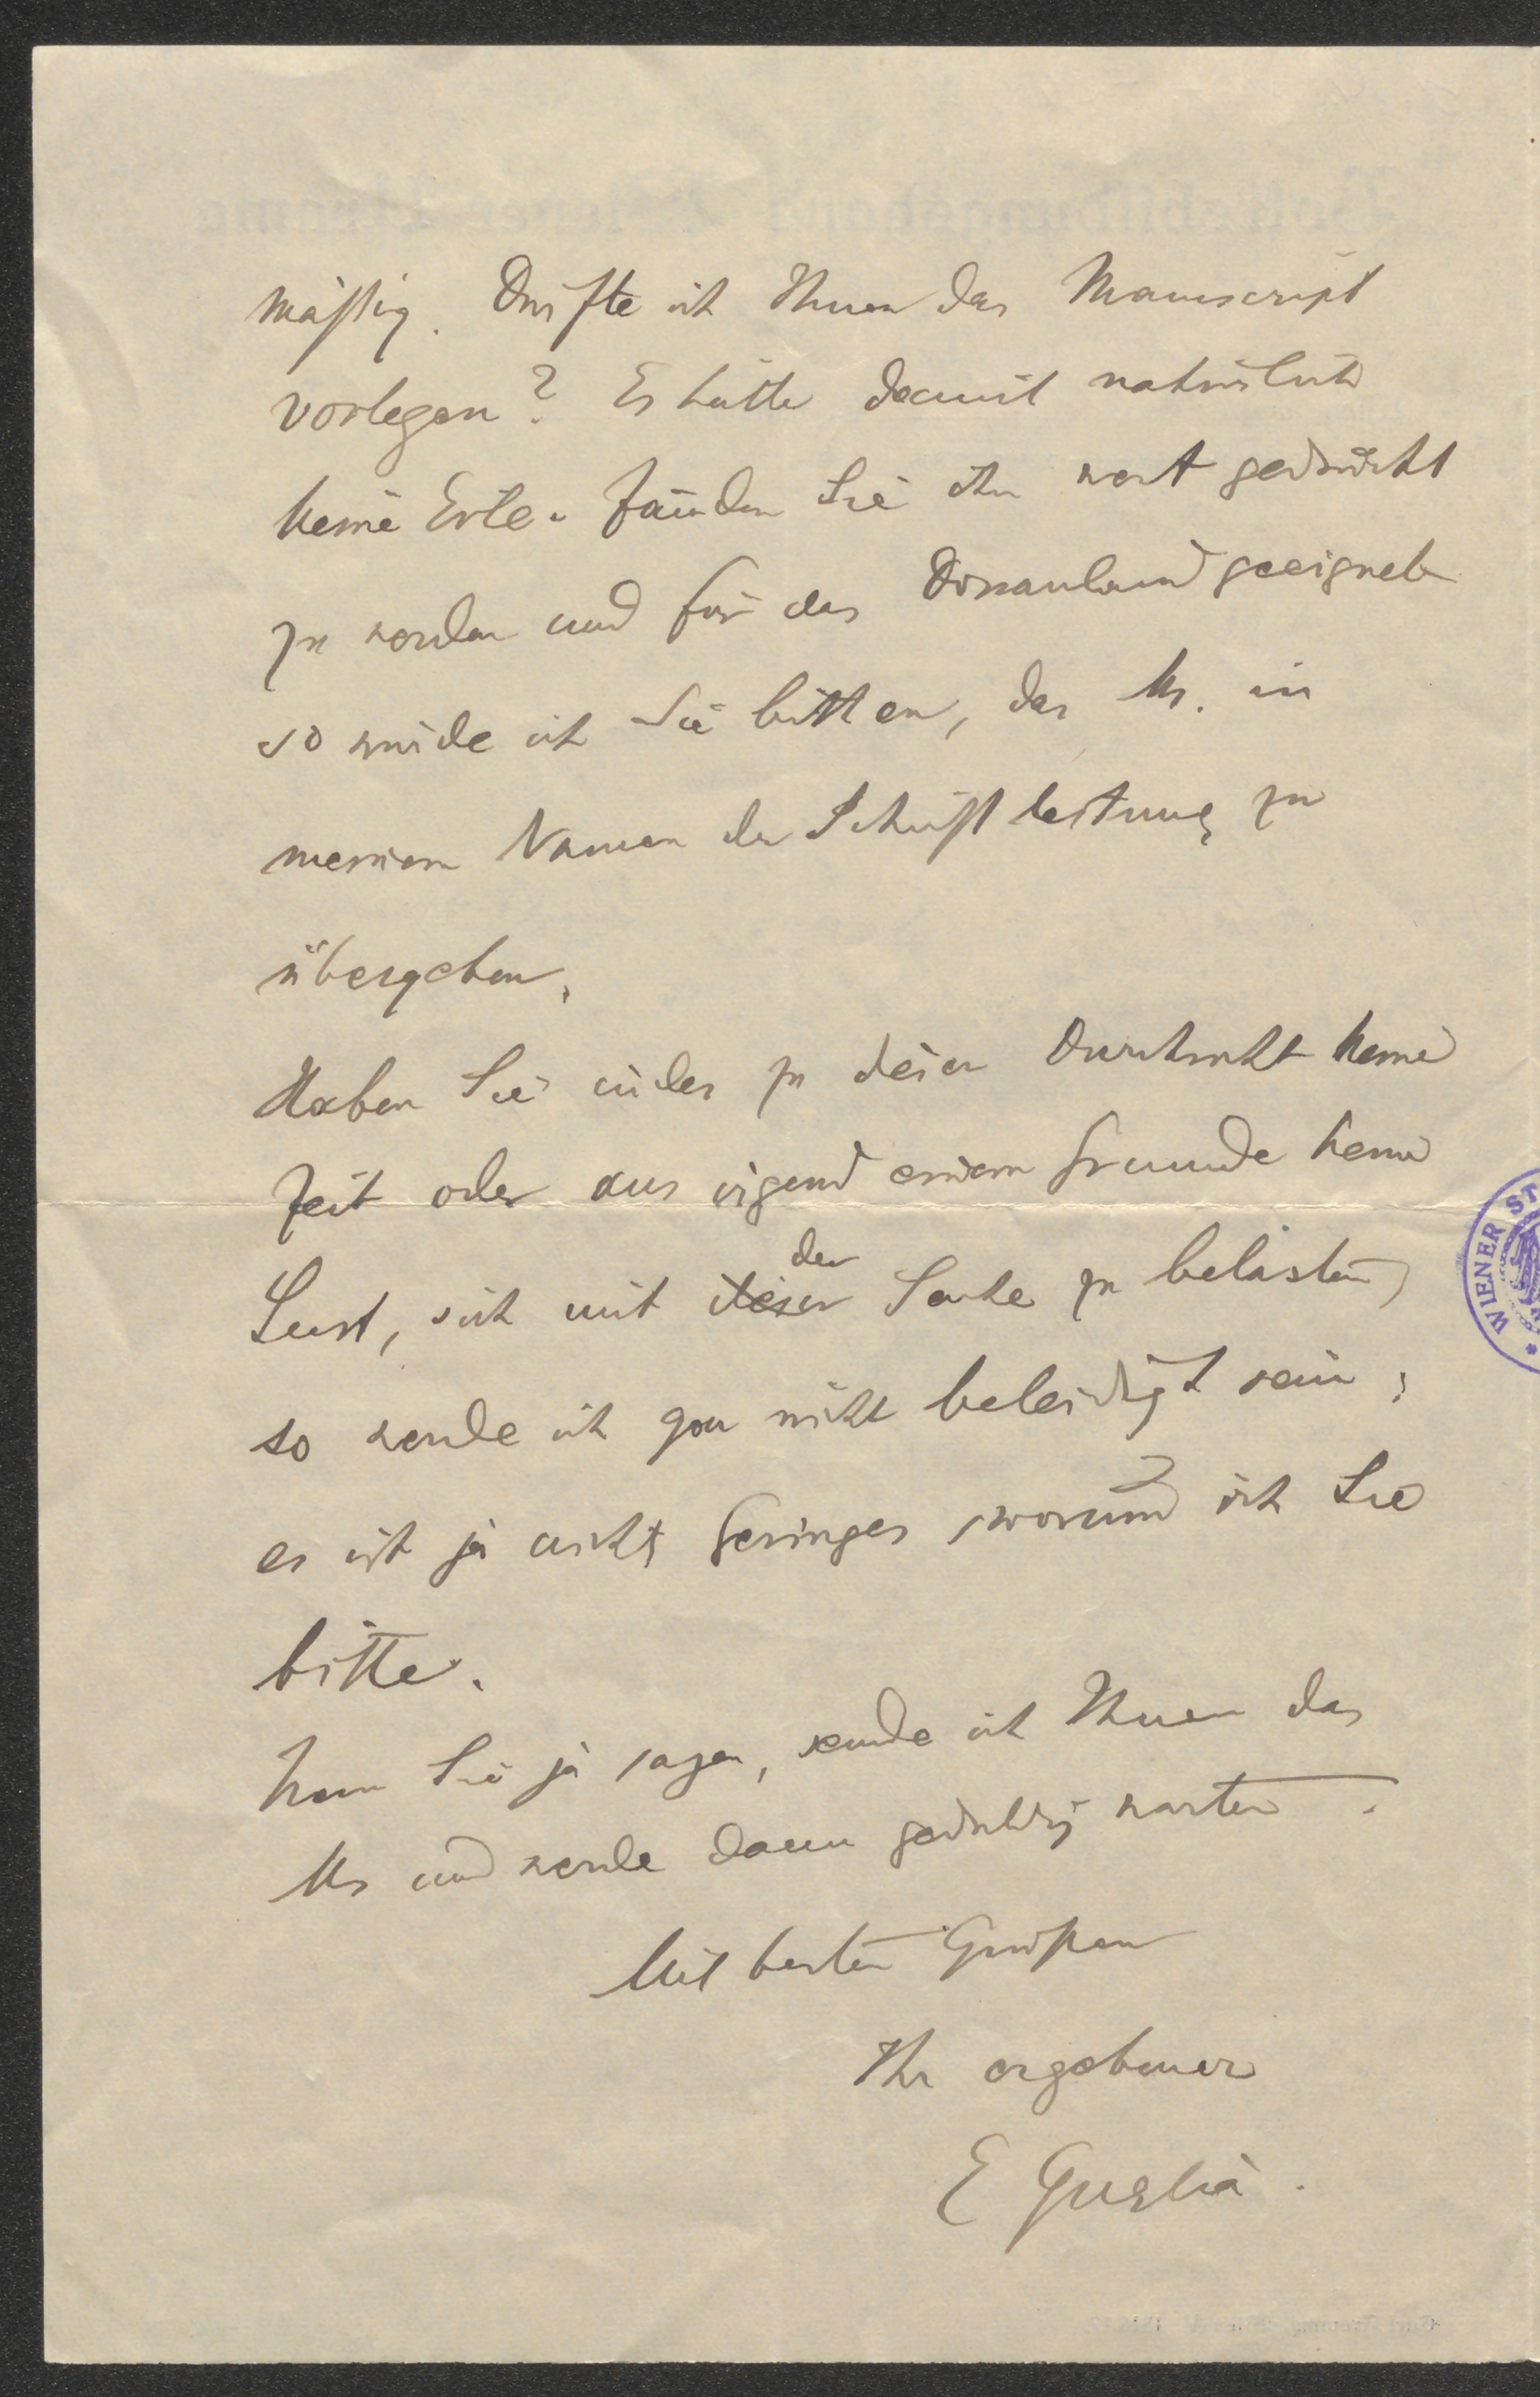 mäßig. Dürfte ich Ihnen das Manuscript
vorlegen? Es hätte damit natürlich
keine Eile. Fänden Sie ihn wert gedruckt
zu werden und für das Donauland geeignet
so würde ich Sie bitten, das Ms. in
meinem Namen der Schriftleitung zu
übergeben.
Haben Sie indes zu dieser Durchsicht keine
Zeit oder aus irgend einem Grunde keine
der
Lust, sich mit dieser Sache zu belasten,
so werde ich gar nicht beleidigt sein;
es ist ja nicht Geringes, worum ich Sie
bitte.
Wenn Sie ja sagen, sende ich Ihnen das
Ms und werde dann geduldig warten.
Mit besten Grüßen
Ihr ergebener
E Guglia.
WIENER ST